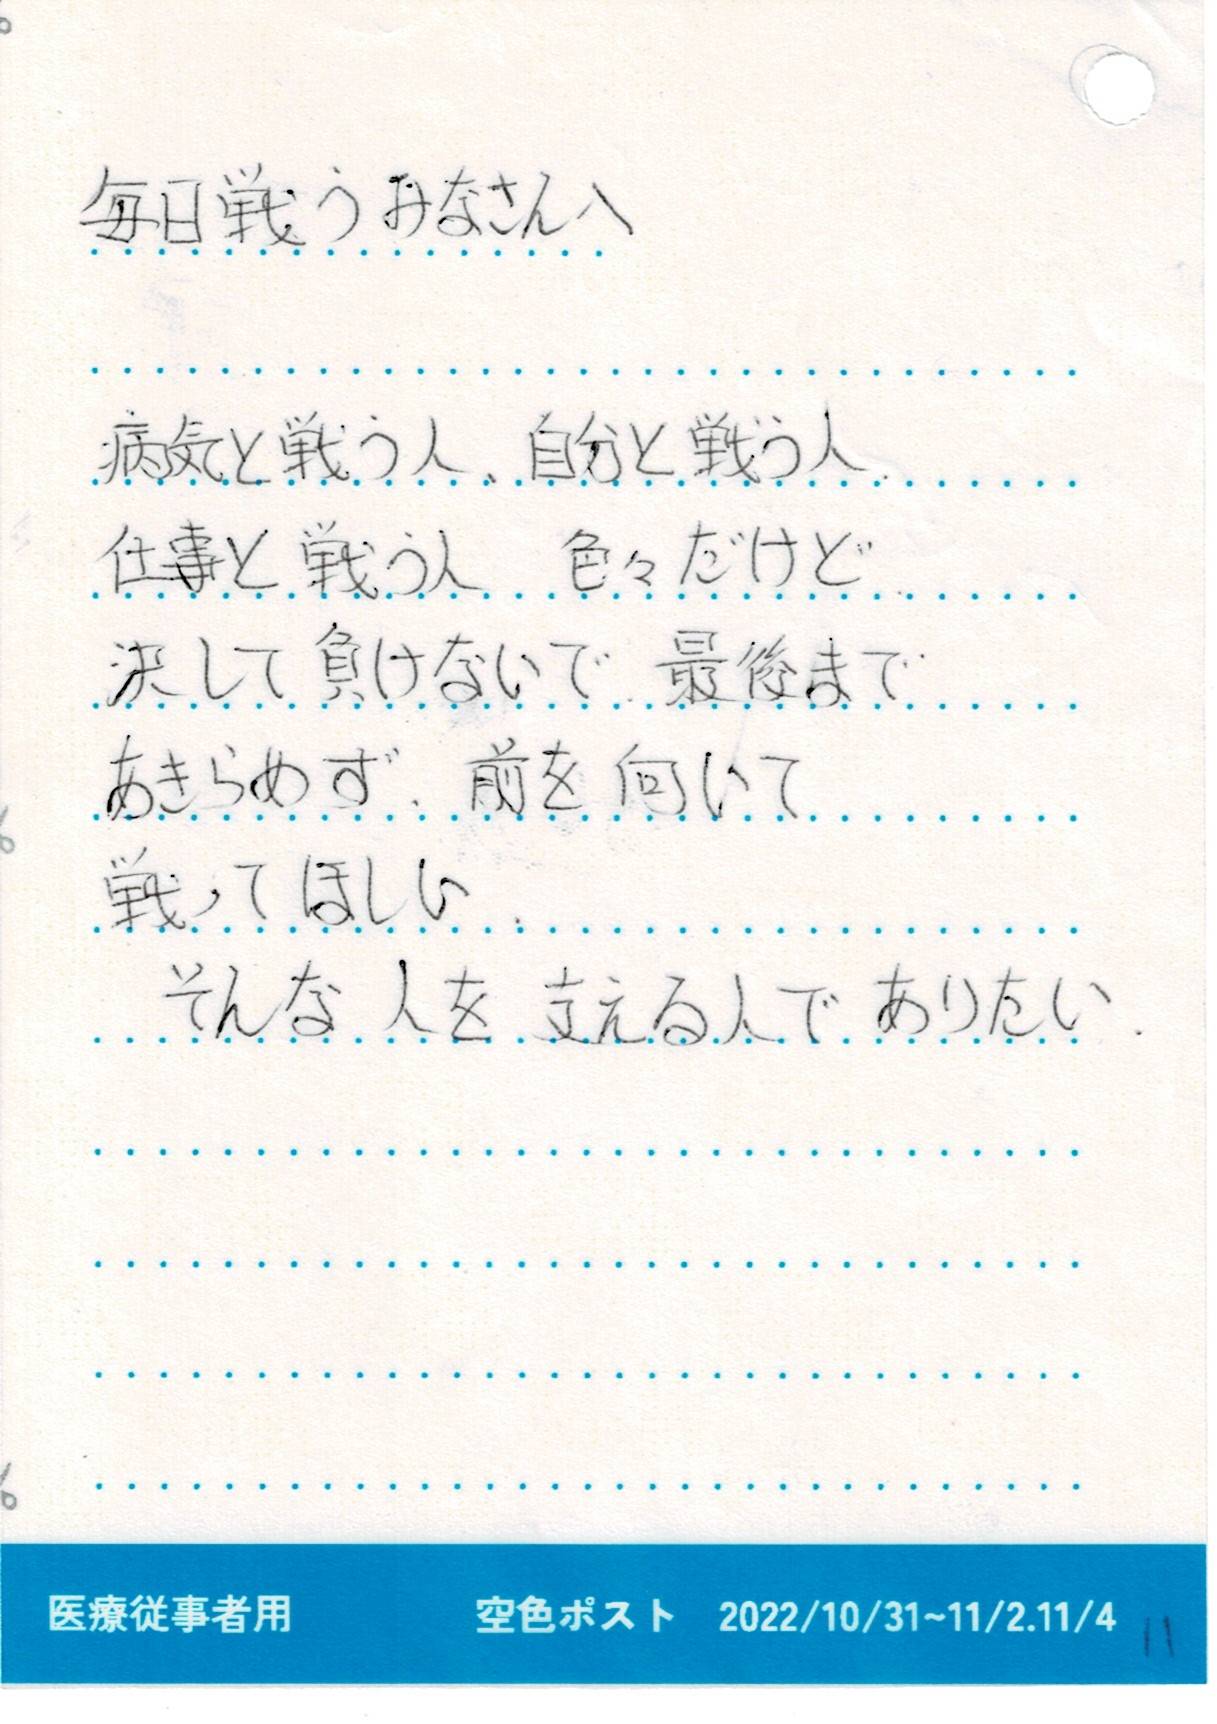 毎日戦うみなさんへ
病気と戦う人、自分と戦う人
仕事と戦う人 色々だけど
決して負けないで 最後まで
あきらめず、前を向いて
戦ってほしい.
そんな人を支える人でありたい.
医療従事者用 空色ポスト 2022/10/31~11/2.11/4 11